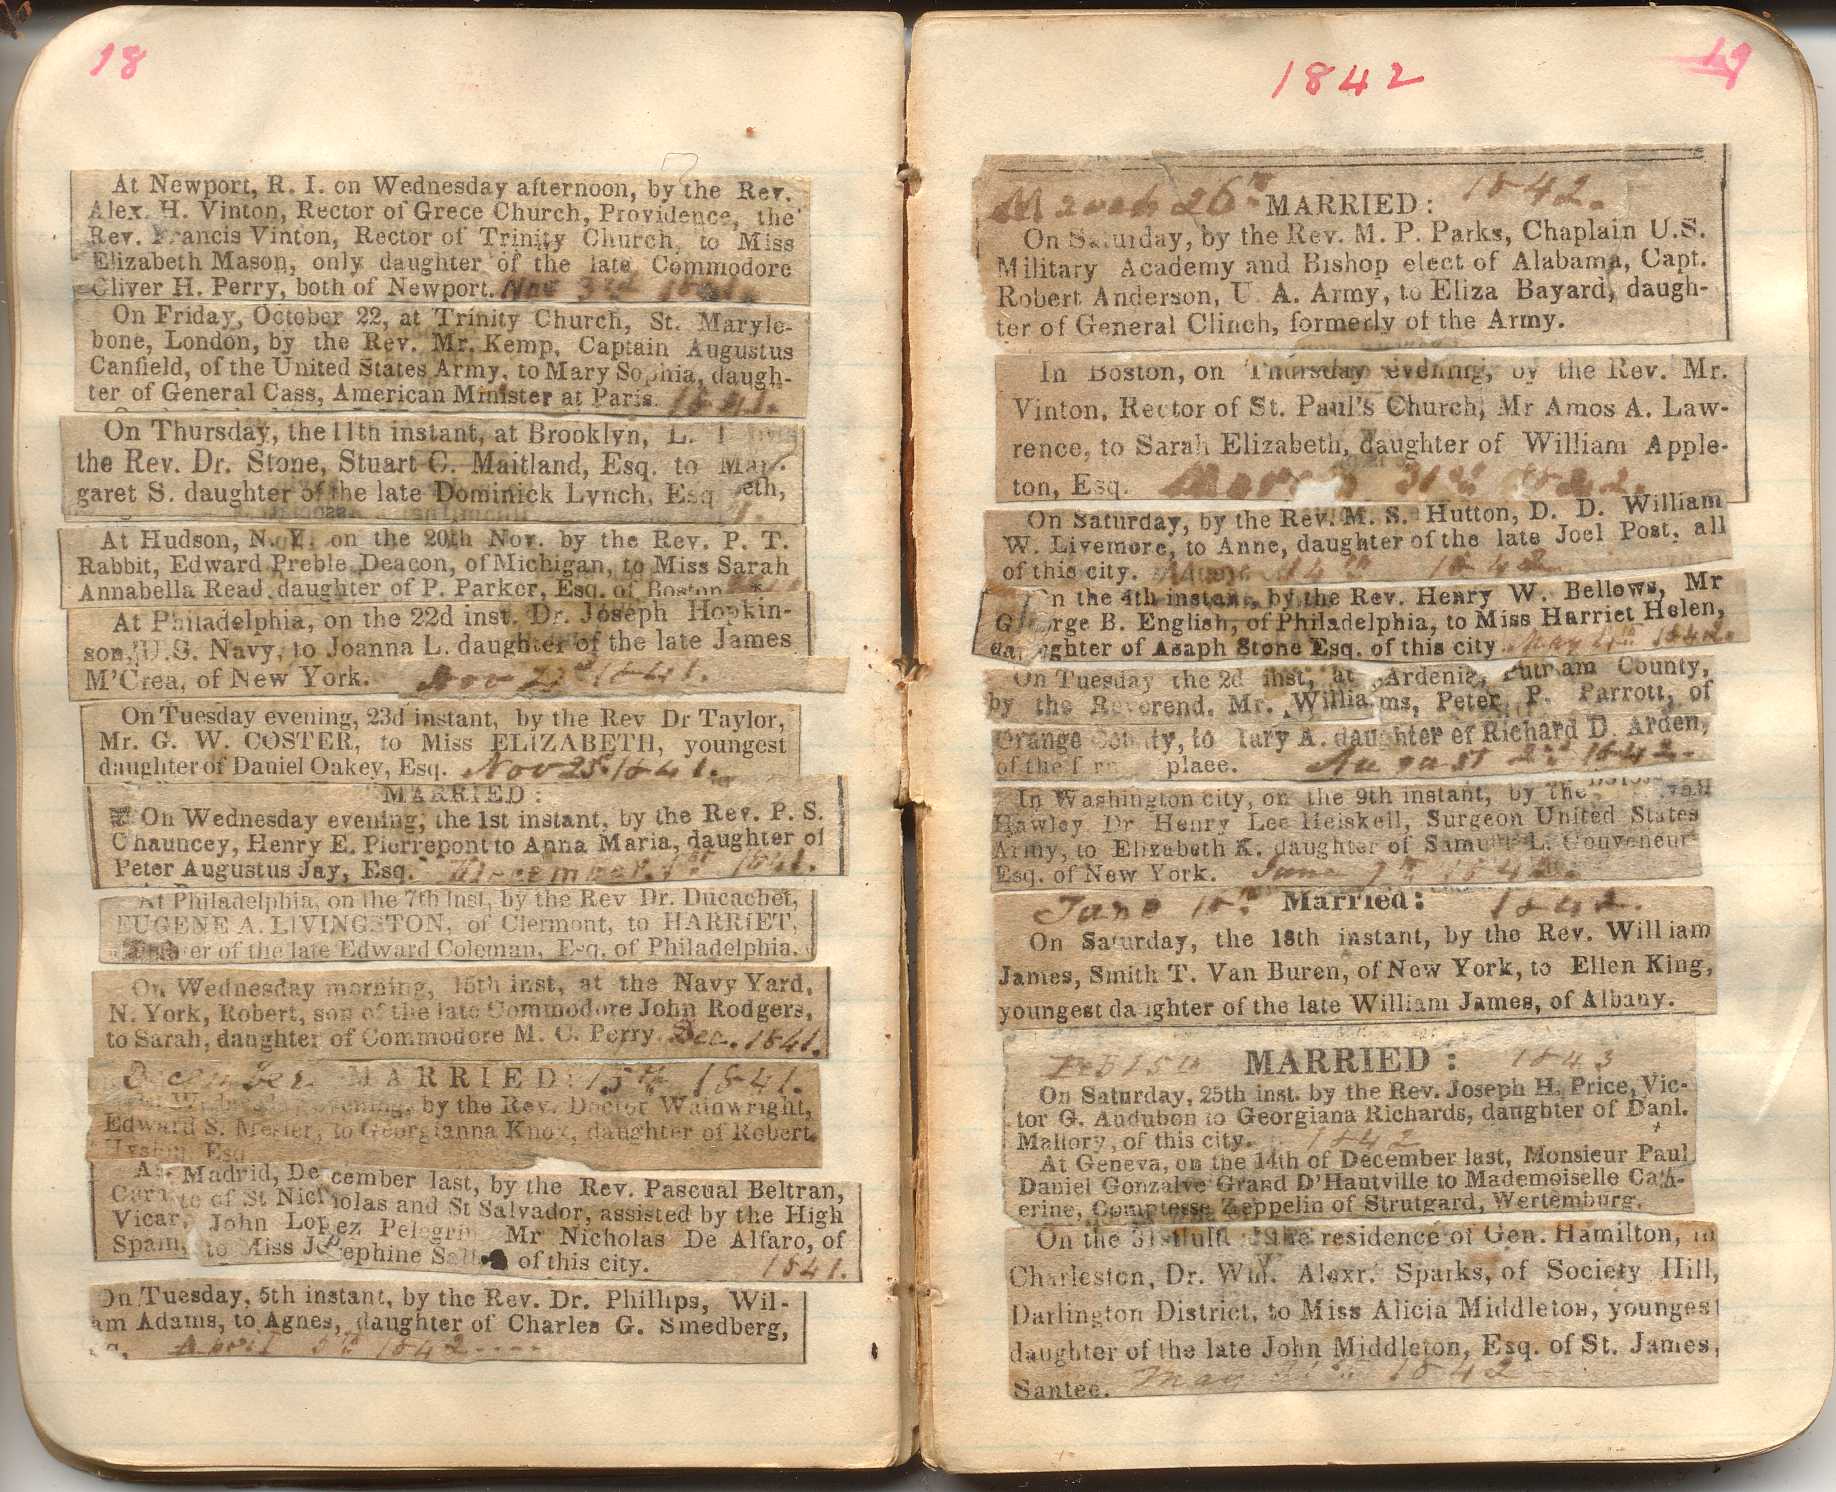 18
At Newport, R. I. on Wednesday afternoon, by the Rev.
Alex. H. Vinton, Rector of Grece Church, Providence, the
Rev. Francis Vinton, Rector of Trinity Church, to Miss
Elizabeth Mason, only daughter of the late Commodore
Oliver H. Perry, both of Newport. Nov 3rd 1841.
On Friday, October 22, at Trinity Church, St. Maryle-
bone, London, by the Rev. Mr. Kemp, Captain Augustus
Canfield, of the United States Army, to Mary Sophia, daugh-
ter of General Cass, American Minister at Paris. 1841.
On Thursday, the 11th instant, at Brooklyn, L.
the Rev. Dr. Stone, Stuart C. Maitland, Esq. to Mar-
garet S. daughter of the late Dominick Lynch, Esq eth,
At Hudson, N. Y. on the 20th Nov. by the Rev. P. T.
Rabbit, Edward Preble Deacon, of Michigan, to Miss Sarah
Annabella Read, daughter of P. Parker, Esq. of Boston
At Philadelphia, on the 22d inst. Dr. Joseph Hopkin-
son, U.S. Navy, to Joanna L. daughter of the late James
M'Crea, of New York. Nov 22d 1841.
On Tuesday evening, 23d instant, by the Rev Dr Taylor,
Mr. G. W. COSTER, to Miss ELIZABETH, youngest
daughter of Daniel Oakey, Esq. Nov 1841.
MARRIED:
On Wednesday evening, the 1st instant, by the Rev. P. S.
Chauncey, Henry E. Pierrepont to Anna Maria, daughter of
Peter Augustus Jay, Esq. December 1st 1841.
At Philadelphia, on the 7th inst, by the Rev Dr. Ducachet,
EUGENE A. LIVINGSTON, of Clermont, to HARRIET,
er of the late Edward Coleman, Esq. of Philadelphia.
On Wednesday morning, 15th inst, at the Navy Yard,
N. York, Robert, son of the late Commodore John Rodgers,
to Sarah, daughter of Commodore M. C. Perry. Dec. 1841.
December MARRIED: 15th 1841.
Wednesday evening, by the Rev. Doctor Wainwright,
Edward S. Mesier, to Georgianna Knox, daughter of Robert
Esq
At Madrid, December last, by the Rev. Pascual Beltran,
Curate of St Nicholas and St Salvador, assisted by the High
Vicar, John Lopez Pelegrin Mr Nicholas De Alfaro, of
Spain, to Miss Josephine of this city. 1841.
On Tuesday, 5th instant, by the Rev. Dr. Phillips, Wil-
am Adams, to Agnes, daughter of Charles G. Smedberg,
April 5th 1842
1842
19
March 26th MARRIED: 1842.
On Saturday, by the Rev. M. P. Parks, Chaplain U.S.
Military Academy and Bishop elect of Alabama, Capt.
Robert Anderson, U. A. Army, to Eliza Bayard, daugh-
ter of General Clinch, formerly of the Army.
In Boston, on Thursday evening, by the Rev. Mr.
Vinton, Rector of St. Paul's Church, Mr Amos A. Law-
rence, to Sarah Elizabeth, daughter of William Apple-
ton, Esq. March 31st 1842.
On Saturday, by the Rev. M. S. Hutton, D. D. William
W. Livemore, to Anne, daughter of the late Joel Post, all
of this city. 14th 1842
On the 4th instant, by the Rev. Henry W. Bellows, Mr
George B. English, of Philadelphia, to Miss Harriet Helen,
daughter of Asaph Stone Esq. of this city. May 4th 1842.
On Tuesday the 2d inst, at Ardenia, Putnam County,
by the Reverend. Mr. Williams, Peter P. Parrott, of
Orange County, to Mary A. daughter of Richard D. Arden,
of the place. August 2nd 1842.
In Washington city, on the 9th instant, by the
Hawley Dr Henry Lee Heiskell, Surgeon United States
Army, to Elizabeth K. daughter of Samuel L. Gouveneur
Esq. of New York. June 1842.
June 18th Married: 1842.
On Saturday, the 18th instant, by the Rev. William
James, Smith T. Van Buren, of New York, to Ellen King,
youngest daughter of the late William James, of Albany.
Feb MARRIED: 1843
On Saturday, 25th inst. by the Rev. Joseph H. Price, Vic-
tor G. Audubon to Georgiana Richards, daughter of Danl.
Mallory, of this city. 1842
At Geneva, on the 14th of December last, Monsieur Paul
Daniel Gonzalve Grand D'Hautville to Mademoiselle Cath-
erine, Comptesse Zeppelin of Strutgard, Wertemburg.
On the 31st at the residence of Gen. Hamilton, in
Charleston, Dr. Wm. Alexr. Sparks, of Society Hill,
Darlington District, to Miss Alicia Middleton, youngest
daughter of the late John Middleton, Esq. of St. James,
Santee. May 31st 1842